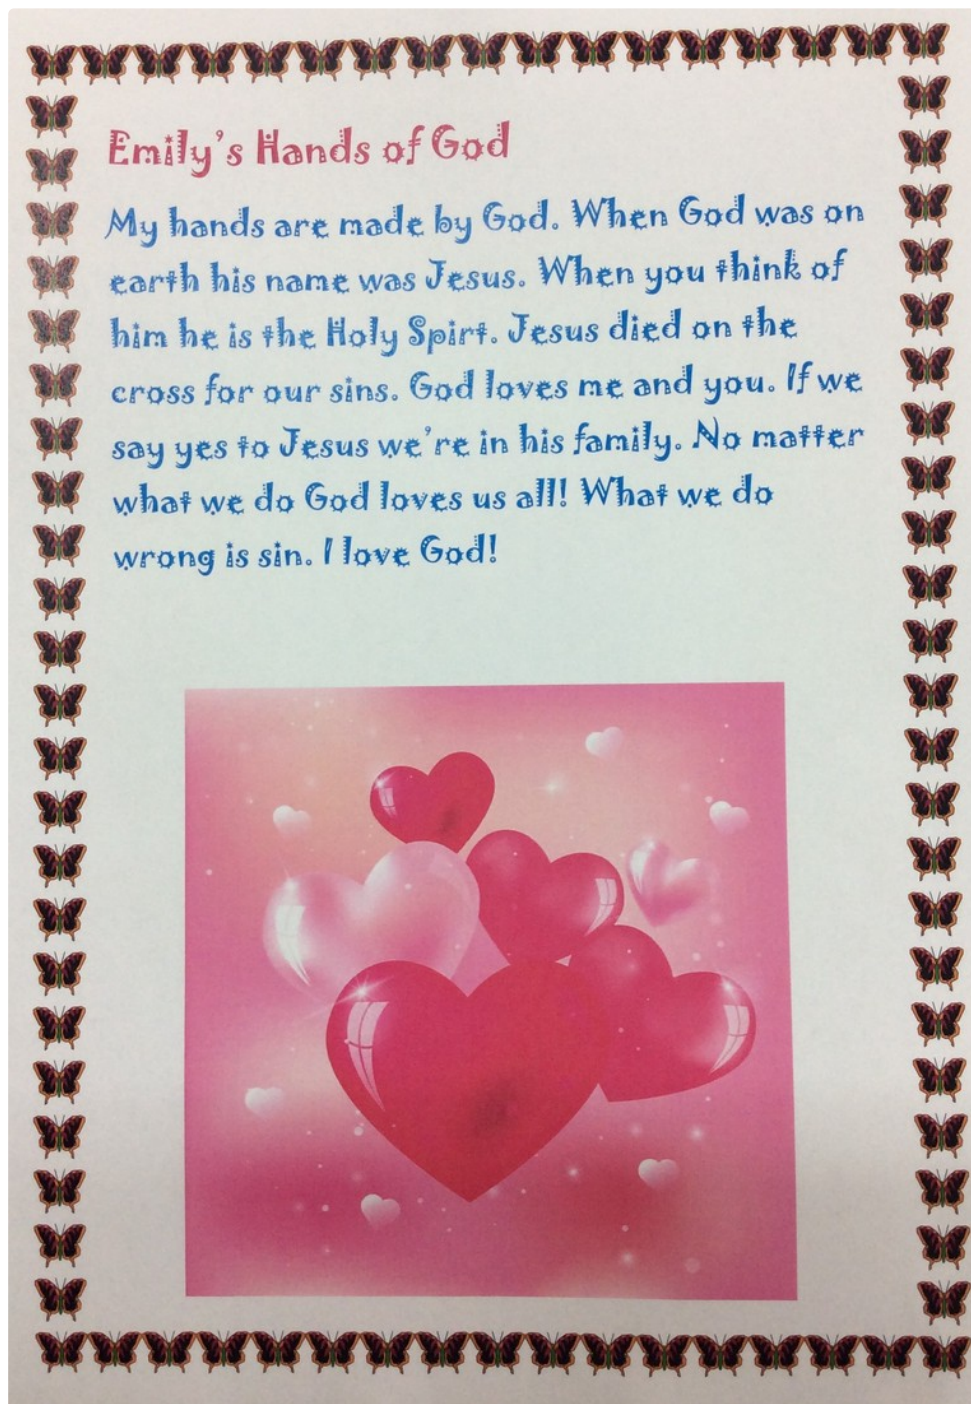 Emily's Hands of God
My hands are made by God. When God was on
earth his name was Jesus. When you think of
him he is the Holy Spirt. Jesus died on the
cross for our sins. God loves me and you. If we
say yes to Jesus we're in his family. No matter
what we do God loves us all! What we do
wrong is sin. I love God!